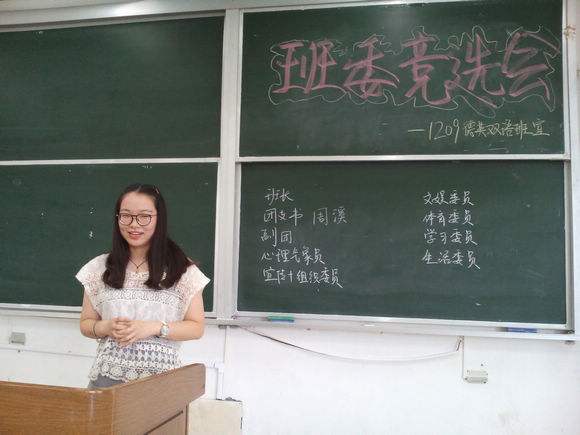 班委竞选会
—1209德英双语班宣
班长
团支书 周溪
副团
心理气象员
宣传+组织委员
文娱委员
体育委员
学习委员
生活委员